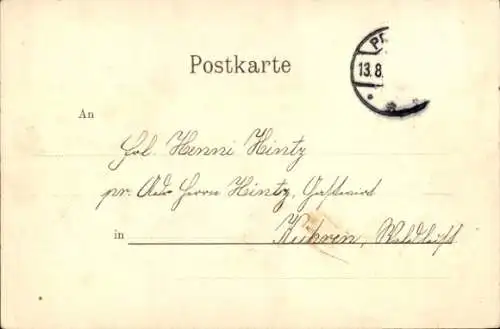 Postkarte
PR
13.8.
An
Frl. Henni Hintz
pr. Adr Herrn Hintz, Gastwirt
in Kühren,